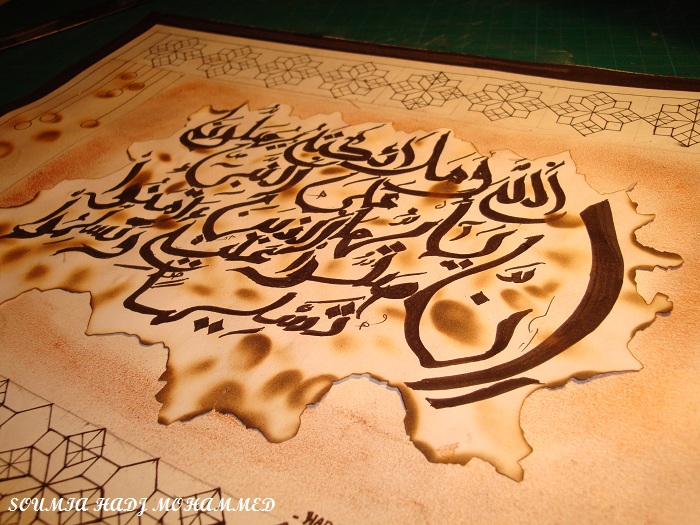 إنّ الله وملائكته يصلون
على النبي
يأيها الذين ءامنوا
صلوا عليه وسلموا
تسليما
SOUMIA HADJ MOHAMMED